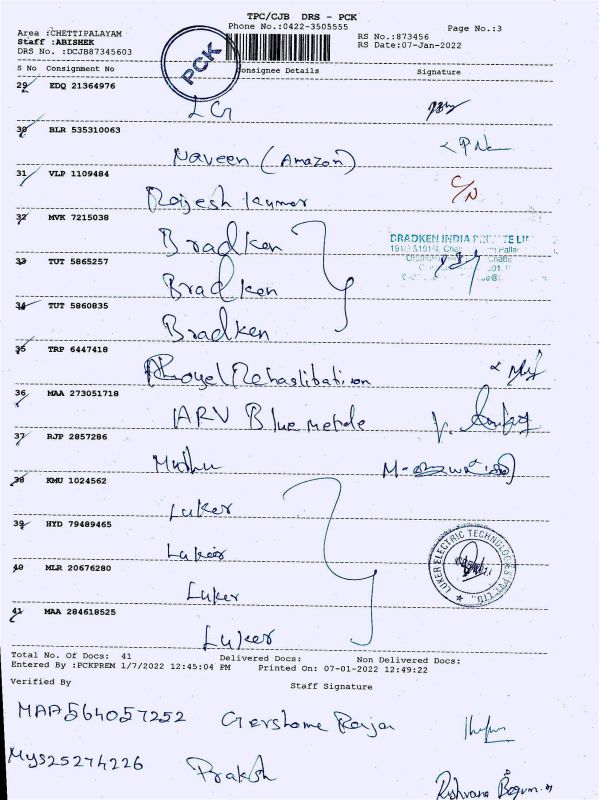 TPC/CJB DRS - PCK
Phone No.:0422-3505555
Page No.:3
Area :CHETTIPALAYAM
Staff :ABISHEK
DRS No. :DCJB87345603
RS No.:873456
RS Date:07-Jan-2022
PCK
S No Consignment No Consignee Details Signature
29 EDQ 21364976
LG
30 BLR 535310063
Naveen (Amazon)
31 VLP 1109484
C/N
Rajesh kumar
32 MVK 7215038
Bradken
BRADKEN INDIA
33 TUT 5865257
Bradken
34 TUT 5860835
Bradken
35 TRP 6447418
Royel Rehaslibation
36 MAA 273051718
ARV Blue metale
37 RJP 2857286
Muthu
38 KMU 1024562
Luker
39 HYD 79489465
Luker
LUKER ELECTRIC TECHNOLOGIES PVT. LTD.
40 MLR 20676280
Luker
41 MAA 284618525
Luker
Total No. Of Docs: 41 Delivered Docs: Non Delivered Docs:
Entered By :PCKPREM 1/7/2022 12:45:04 PM Printed On: 07-01-2022 12:49:22
Verified By Staff Signature
MAA564057252 Gershome Raja
Mys25274226 Prakash
Rishvana Begum